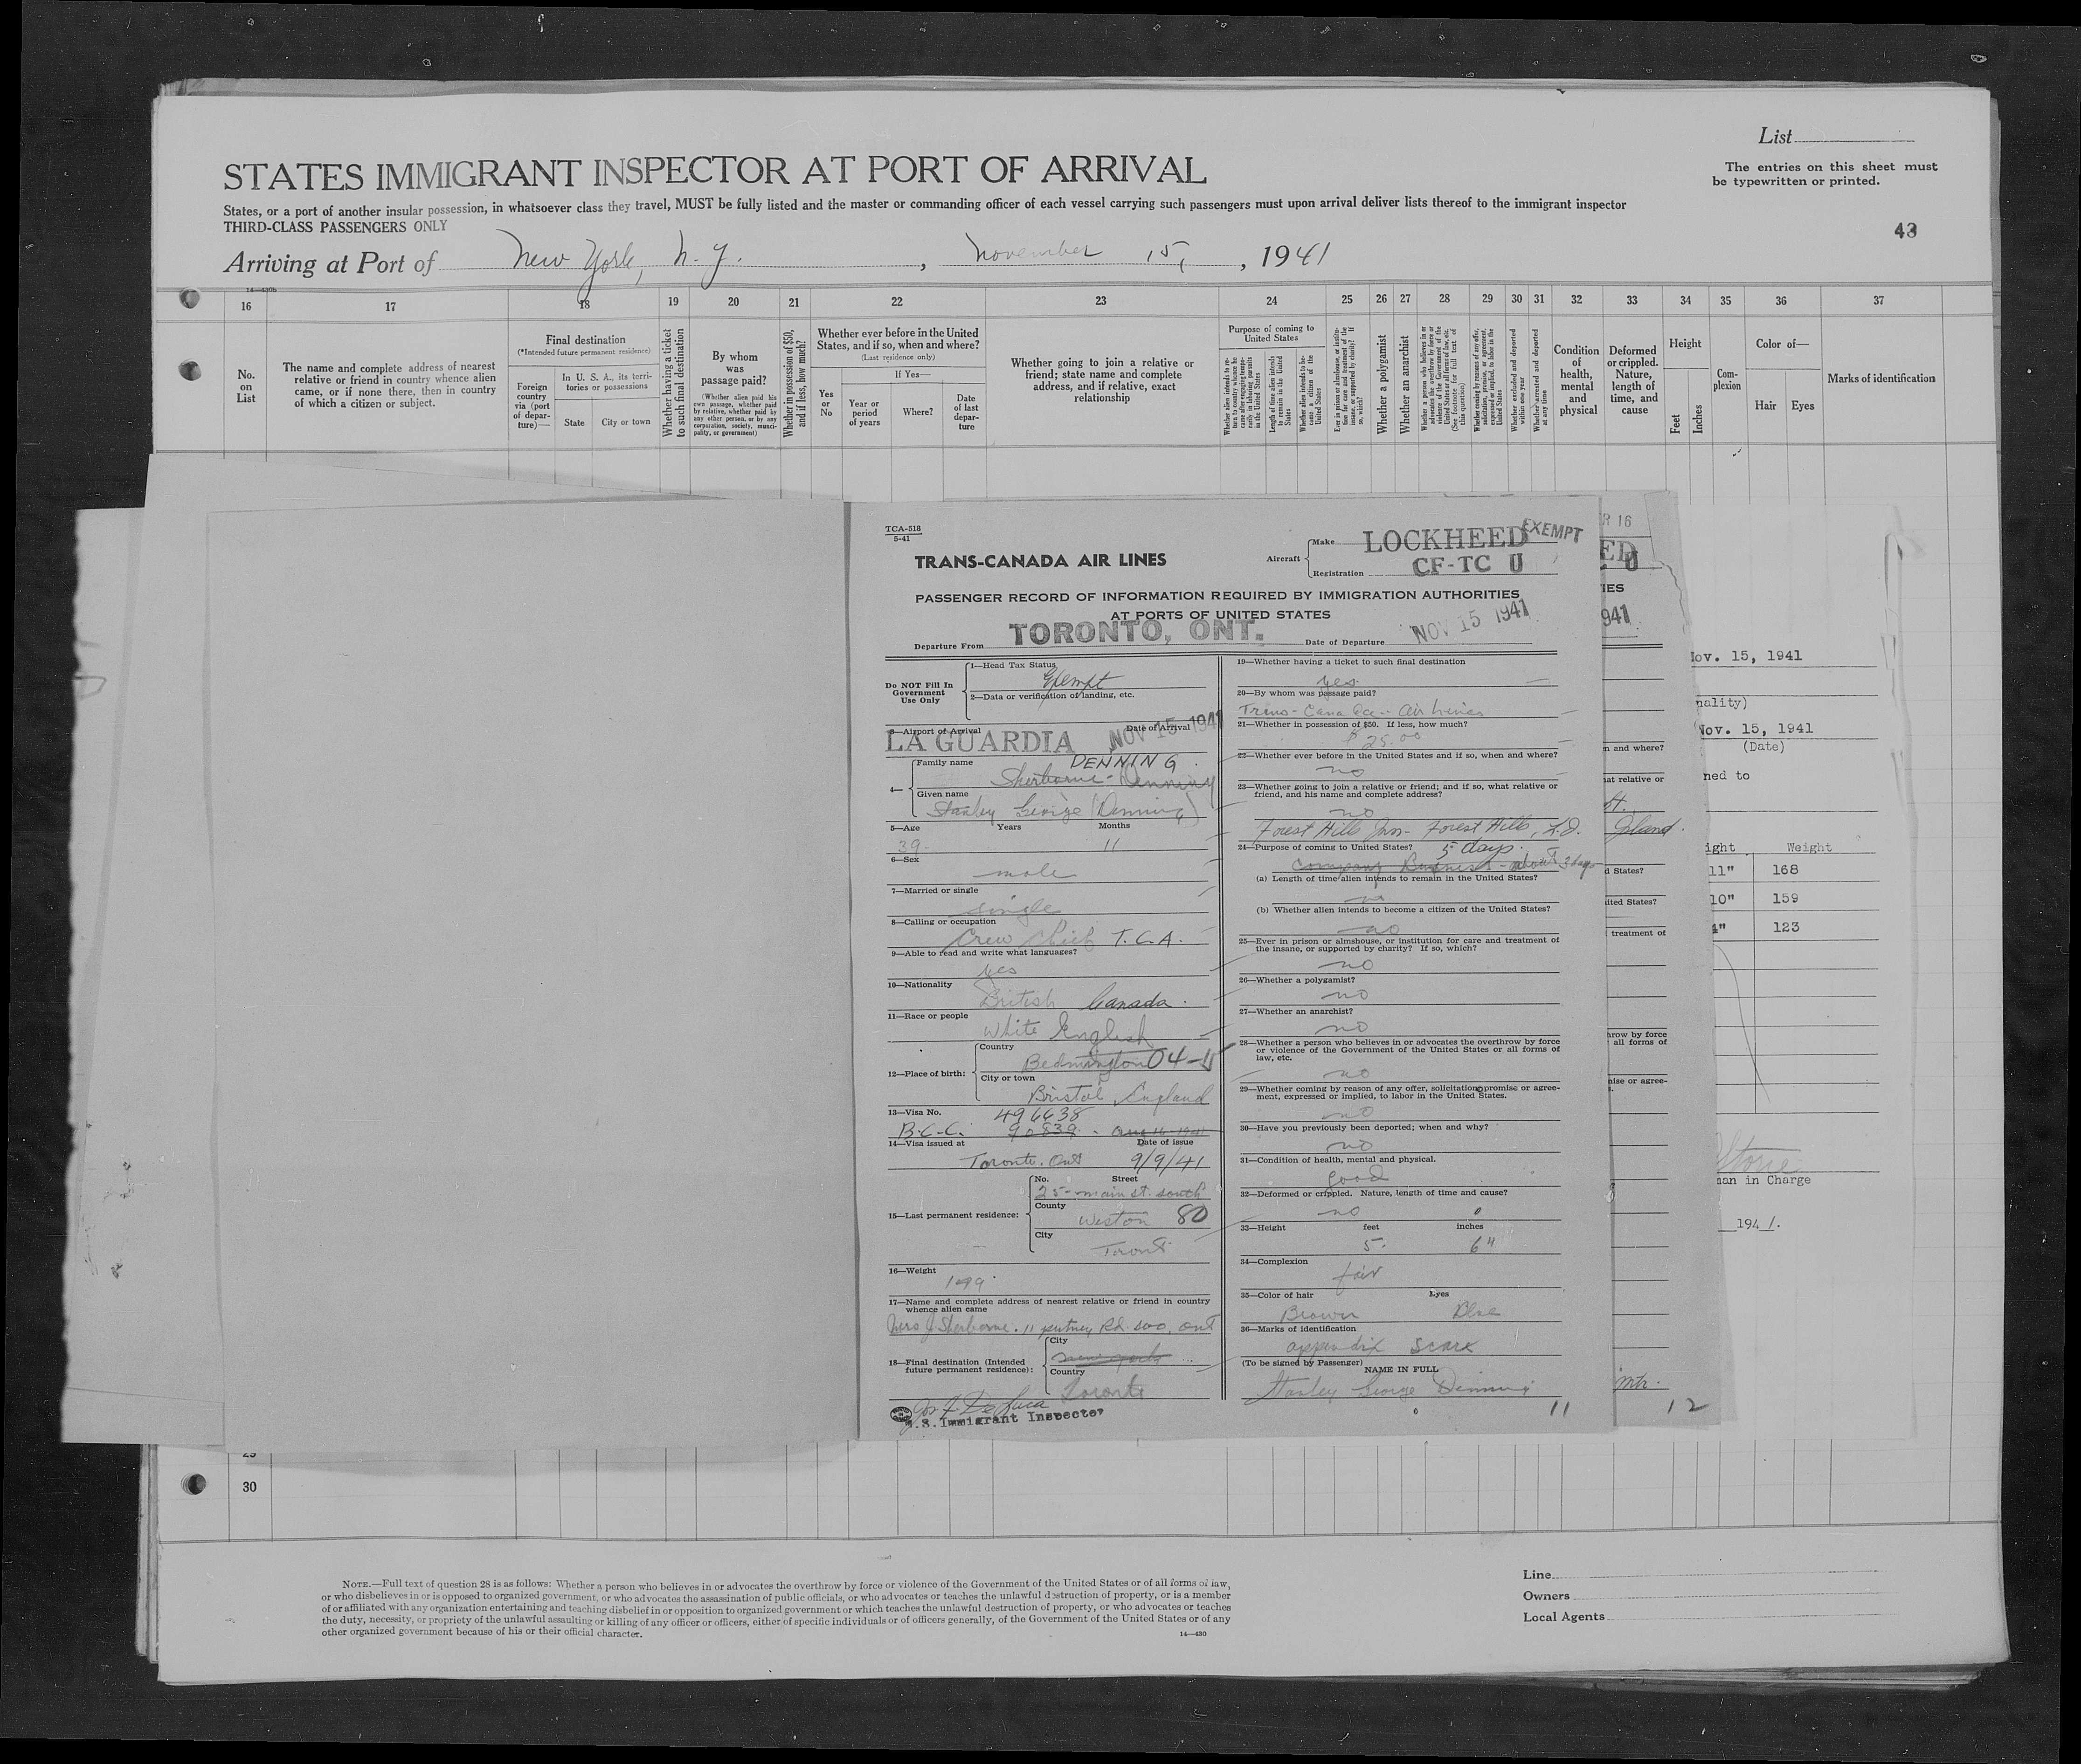 List
The entries on this sheet must
be typewritten or printed.
STATES IMMIGRANT INSPECTOR AT PORT OF ARRIVAL
States, or a port of another insular possession, in whatsoever class they travel, MUST be fully listed and the master or commanding officer of each vessel carrying such passengers must upon arrival deliver lists thereof to the immigrant inspector
THIRD-CLASS PASSENGERS ONLY
43
Arriving at Port of New York, N. Y. , November 15, , 1941
16 17 18 19 20 21 22 23 24 25 26 27 28 29 30 31 32 33 34 35 36 37
No.
on
List
The name and complete address of nearest
relative or friend in country whence alien
came, or if none there, then in country
of which a citizen or subject.
Final destination
(*Intended future permanent residence)
Foreign
country
via (port
of depar-
ture)—
In U. S. A., its terri-
tories or possessions
State City or town
Whether having a ticket
to such final destination
By whom
was
passage paid?
(Whether alien paid his
own passage, whether paid
by relative, whether paid by
any other person, or by any
corporation, society, munici-
pality, or government)
Whether in possession of $50,
and if less, how much?
Whether ever before in the United
States, and if so, when and where?
(Last residence only)
Yes
or
No
If Yes—
Year or
period
of years
Where?
Date
of last
depar-
ture
Whether going to join a relative or
friend; state name and complete
address, and if relative, exact
relationship
Purpose of coming to
United States
Whether a polygamist
Whether an anarchist
Condition
of
health,
mental
and
physical
Deformed
or crippled.
Nature,
length of
time, and
cause
Height
Feet
Inches
Com-
plexion
Color of—
Hair Eyes
Marks of identification
TCA-518
5-41
TRANS-CANADA AIR LINES
Aircraft
Make LOCKHEED EXEMPT
Registration CF-TC U
PASSENGER RECORD OF INFORMATION REQUIRED BY IMMIGRATION AUTHORITIES
AT PORTS OF UNITED STATES
Departure From TORONTO, ONT. Date of Departure NOV 15 1941
Do NOT Fill In
Government
Use Only
1—Head Tax Status
Exempt
2—Data or verification of landing, etc.
3—Airport of Arrival Date of Arrival
LA GUARDIA NOV 15 1941
4—
Family name DENNING
Sherborne-Denning
Given name
Stanley George (Denning)
5—Age Years Months
39 11
6—Sex
male
7—Married or single
single
8—Calling or occupation
Crew Chief T.C.A.
9—Able to read and write what languages?
yes
10—Nationality
British Canada
11—Race or people
White English
12—Place of birth:
Country
Bedmington 04-
City or town
Bristol England
13—Visa No. 496638
B.C.C. 90839
14—Visa issued at Date of issue
Toronto. Ont 9/9/41
15—Last permanent residence:
No. Street
25- main st. south
County
Weston 80
City
Toront
16—Weight
17—Name and complete address of nearest relative or friend in country
whence alien came
Mrs J Sherborne. 11 putney Rd. soo, ont
18—Final destination (Intended
future permanent residence):
City
Country
Toronto
Jos. F. DeLuca
U.S. Immigrant Inspector
19—Whether having a ticket to such final destination
yes
20—By whom was passage paid?
Trans-Canada Air Lines
21—Whether in possession of $50. If less, how much?
$ 25.00
22—Whether ever before in the United States and if so, when and where?
no
23—Whether going to join a relative or friend; and if so, what relative or
friend, and his name and complete address?
no
Forest Hills Inn- Forest Hills, L.I.
24—Purpose of coming to United States? 5 days.
Company Business - about 3 days
(a) Length of time alien intends to remain in the United States?
no
(b) Whether alien intends to become a citizen of the United States?
no
25—Ever in prison or almshouse, or institution for care and treatment of
the insane, or supported by charity? If so, which?
no
26—Whether a polygamist?
no
27—Whether an anarchist?
no
28—Whether a person who believes in or advocates the overthrow by force
or violence of the Government of the United States or all forms of
law, etc.
no
29—Whether coming by reason of any offer, solicitation, promise or agree-
ment, expressed or implied, to labor in the United States.
no
30—Have you previously been deported; when and why?
no
31—Condition of health, mental and physical.
good
32—Deformed or crippled. Nature, length of time and cause?
no
33—Height feet inches
5. 6"
34—Complexion
fair
35—Color of hair Eyes
Brown Blue
36—Marks of identification
appendix scark
(To be signed by Passenger)
NAME IN FULL
Stanley George Denning
11
R 16
ED
U
IES
941
n and where?
at relative or
d States?
ited States?
treatment of
hrow by force
all forms of
nise or agree-
12
Nov. 15, 1941
nality)
Nov. 15, 1941
(Date)
ned to
ight Weight
11" 168
10" 159
4" 123
Stone
man in Charge
1941.
30
NOTE.—Full text of question 28 is as follows: Whether a person who believes in or advocates the overthrow by force or violence of the Government of the United States or of all forms of law,
or who disbelieves in or is opposed to organized government, or who advocates the assassination of public officials, or who advocates or teaches the unlawful destruction of property, or is a member
of or affiliated with any organization entertaining and teaching disbelief in or opposition to organized government or which teaches the unlawful destruction of property, or who advocates or teaches
the duty, necessity, or propriety of the unlawful assaulting or killing of any officer or officers, either of specific individuals or of officers generally, of the Government of the United States or of any
other organized government because of his or their official character.
14—430
Line
Owners
Local Agents